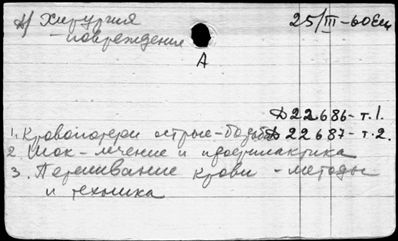 А/ Хирургия 25/III-60 Ен
- повреждения
А
Д22686-т.1.
1. Кровопотери острые - борьба Д22687-т.2.
2. Шок - лечение и профилактика
3. Переливание крови - методы
и техника